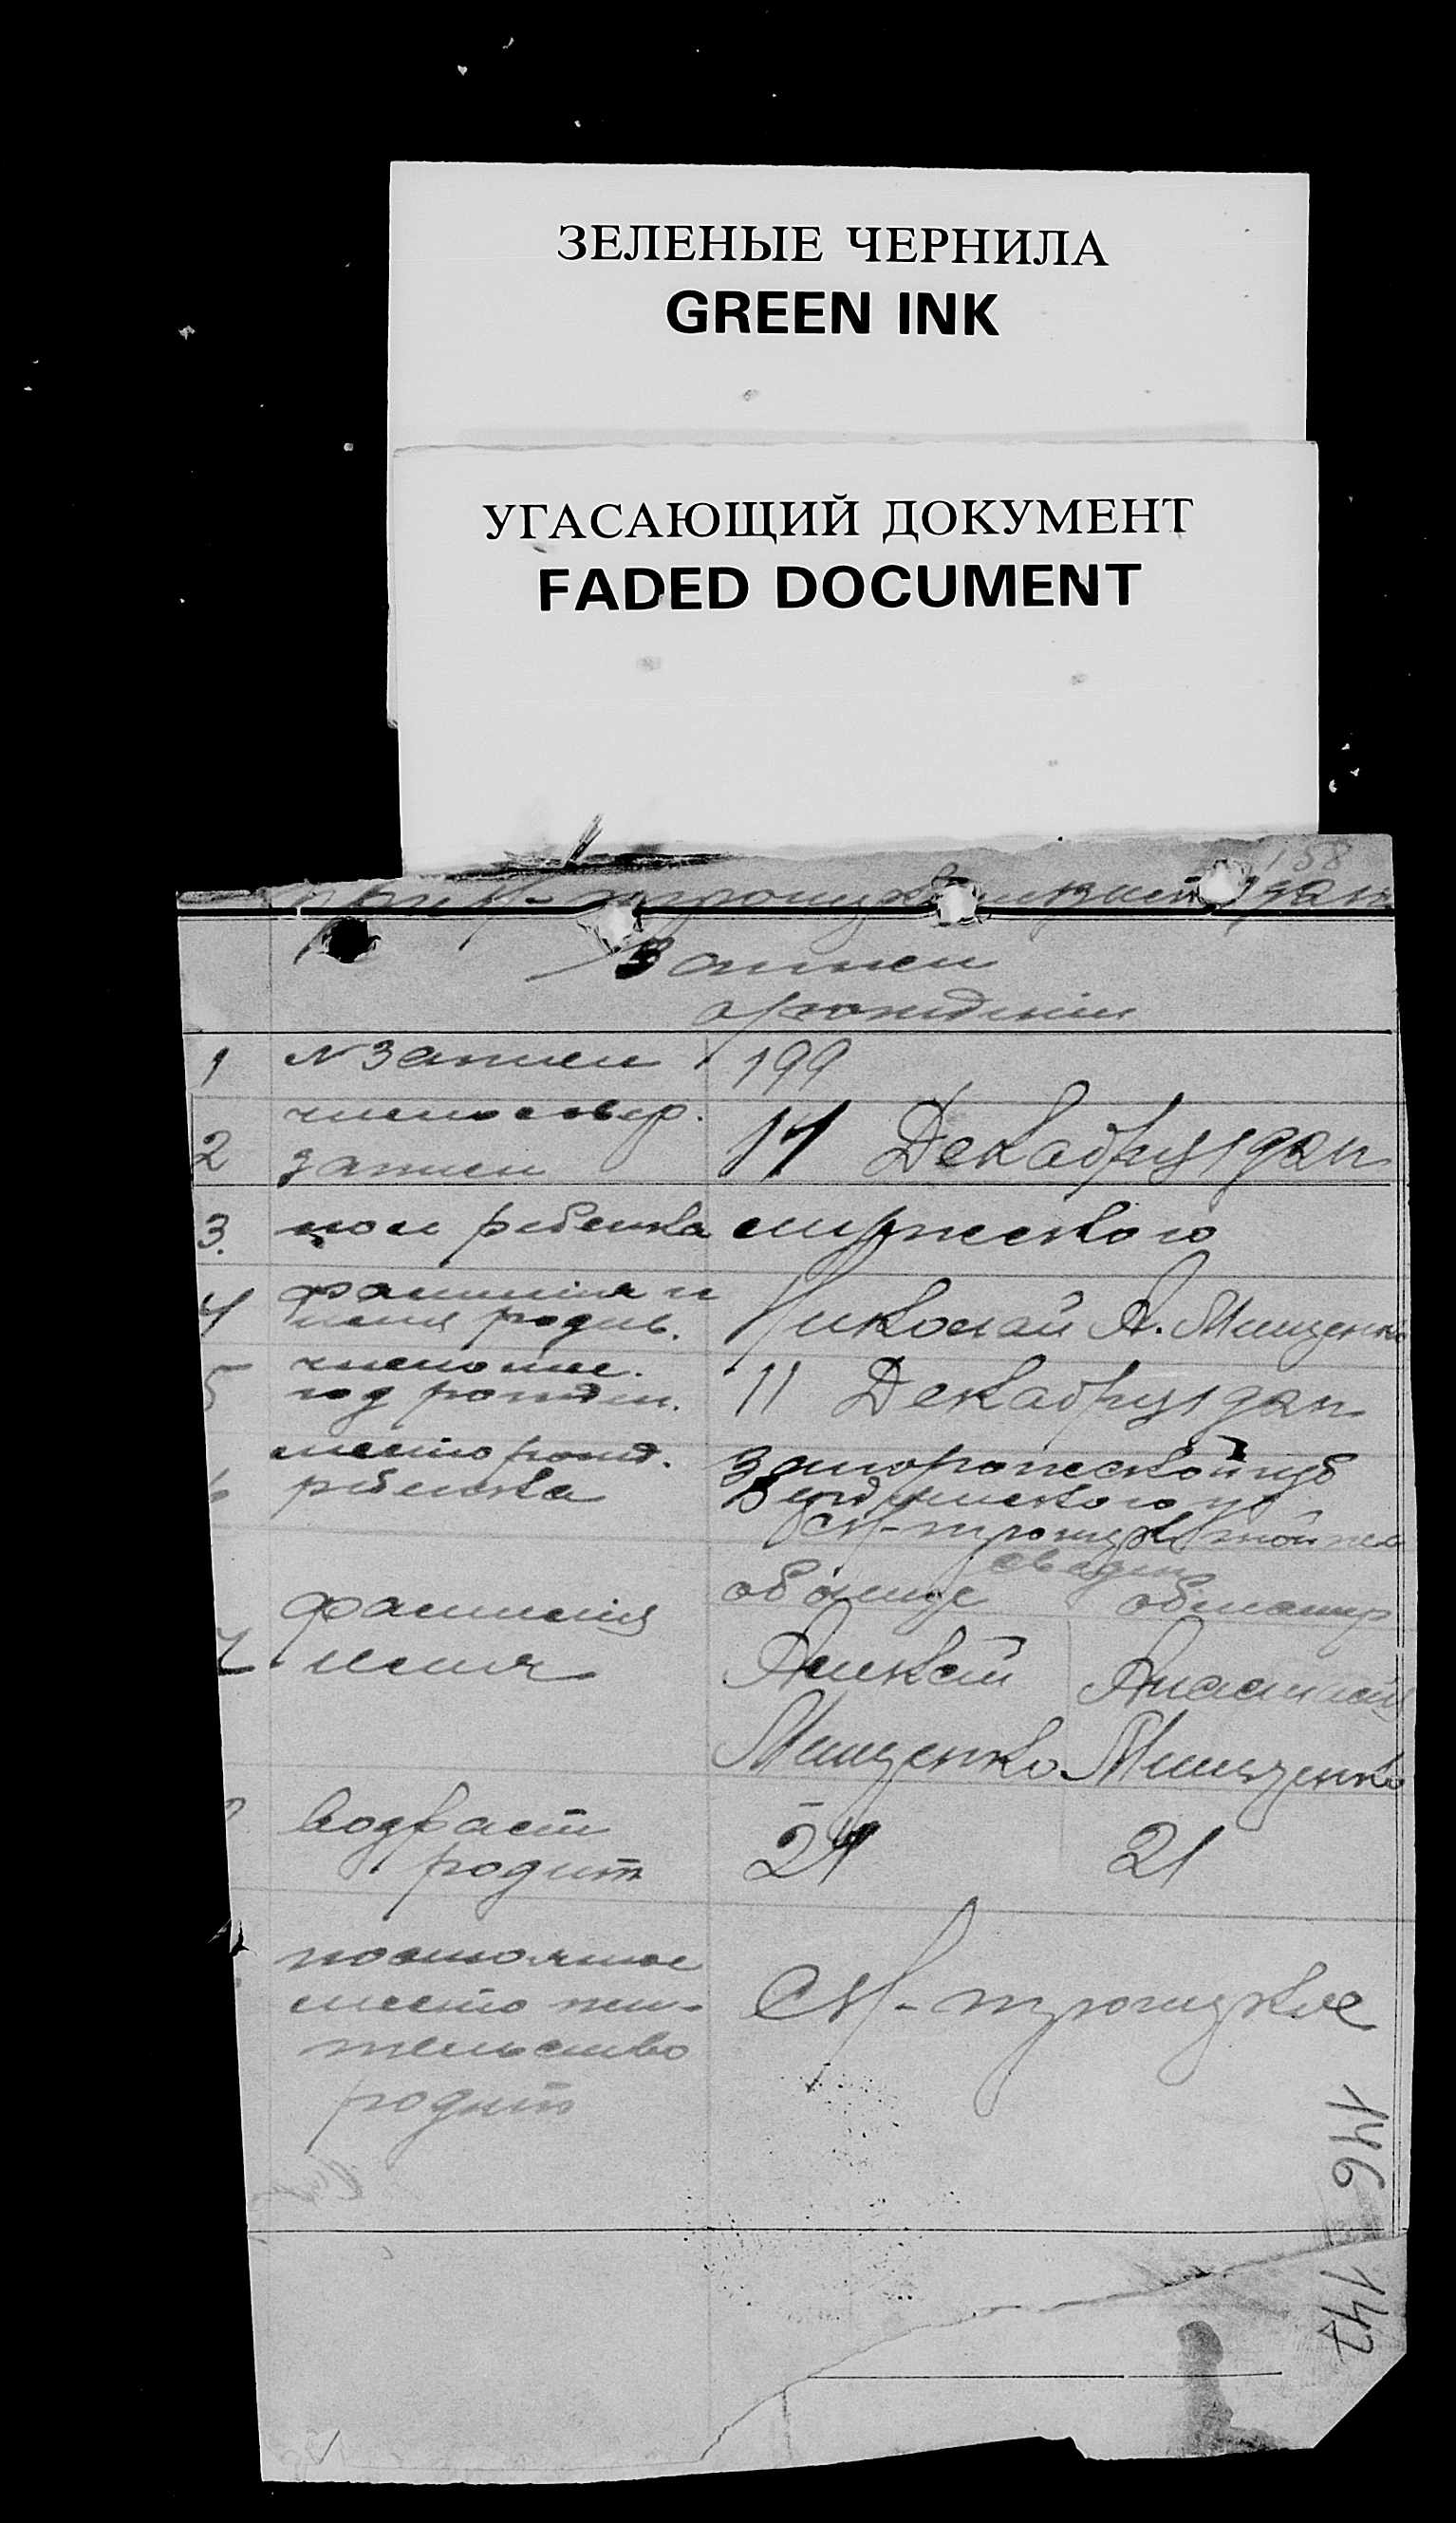 ЗЕЛЕНЫЕ ЧЕРНИЛА
GREEN INK
УГАСАЮЩИЙ ДОКУМЕНТ
FADED DOCUMENT
158
Записи
о рождении
1 № записи 199
2 число совер. записи 17 Декабря 192 г
3. пол ребенка мужеского
4 фамилия и имя родив. Николай А. Мищенко
5 число мес. год рожден. 11 Декабря 192 г
6 место рожд. ребенка Запорожской губ
М-троицк той же
сведен
об отце об матер
7 фамилия имя
Алексей Анастасия
Мищенко Мищенко
возраст родит 24 21
постоянное
место жи-
тельство
родит
М-троицкое
146
147